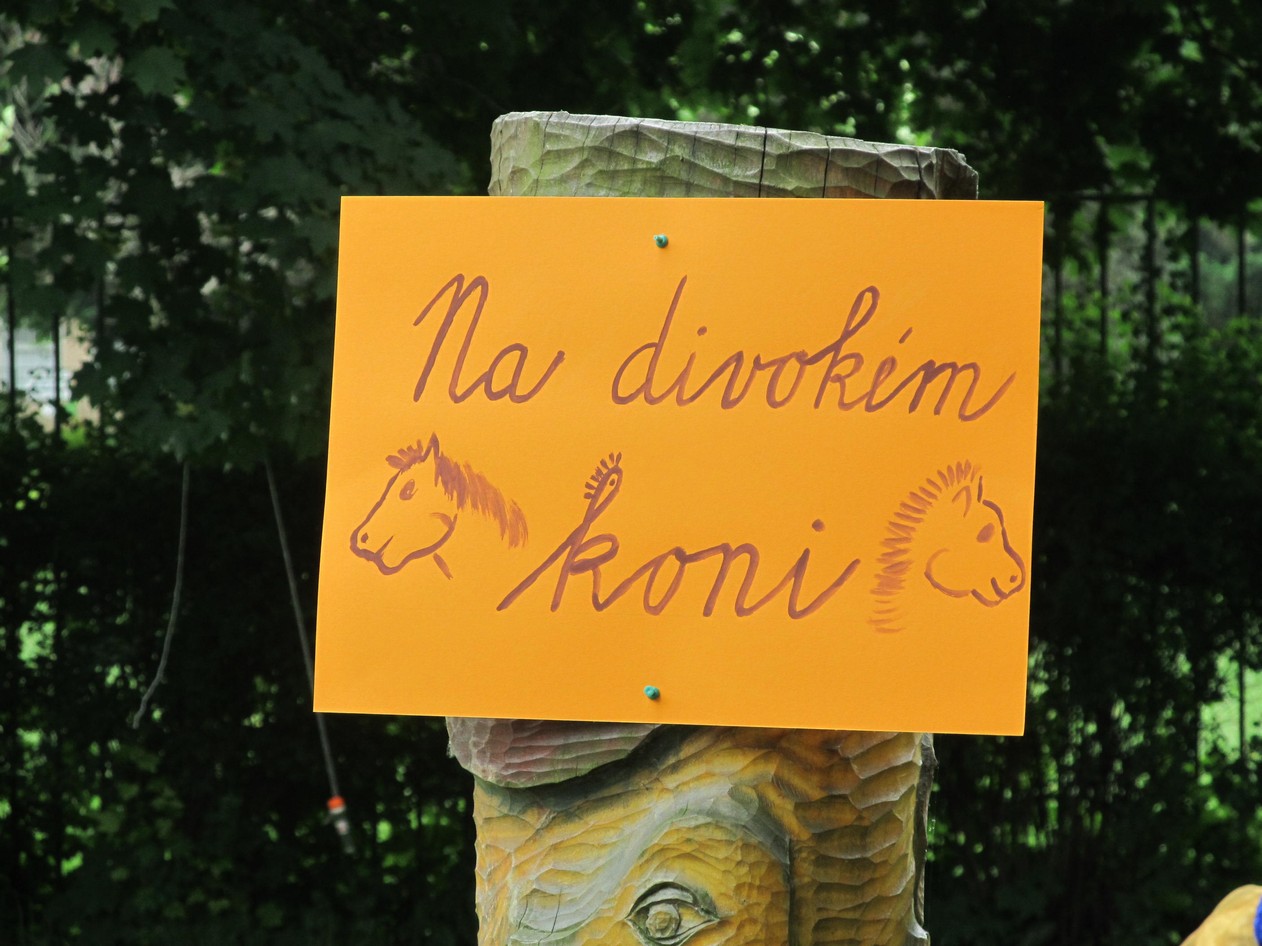 Na divokém
koni